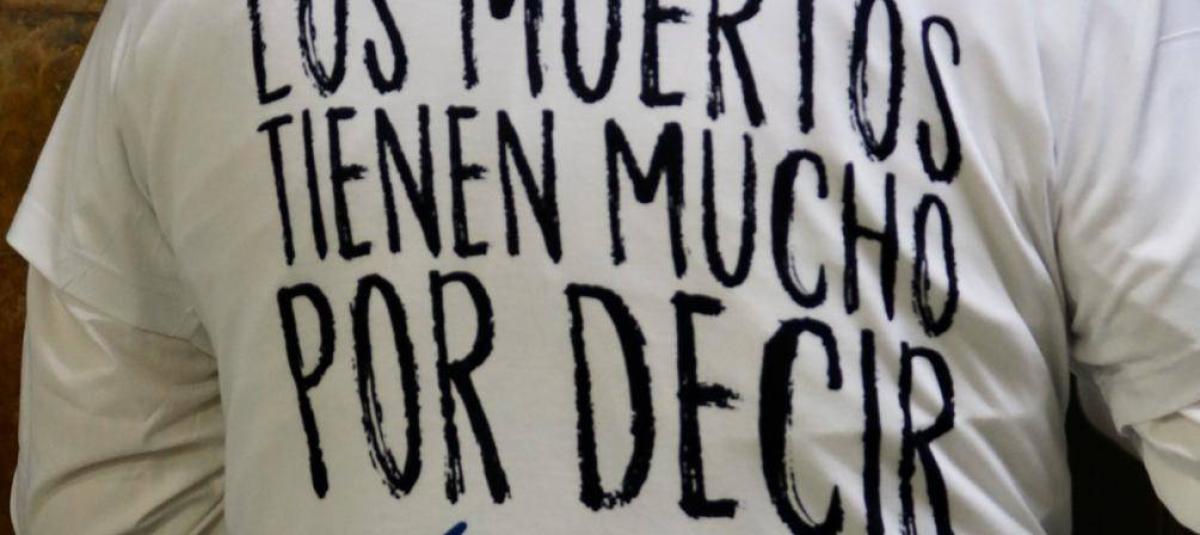 LOS MUERTOS
TIENEN MUCHO
POR DECIR